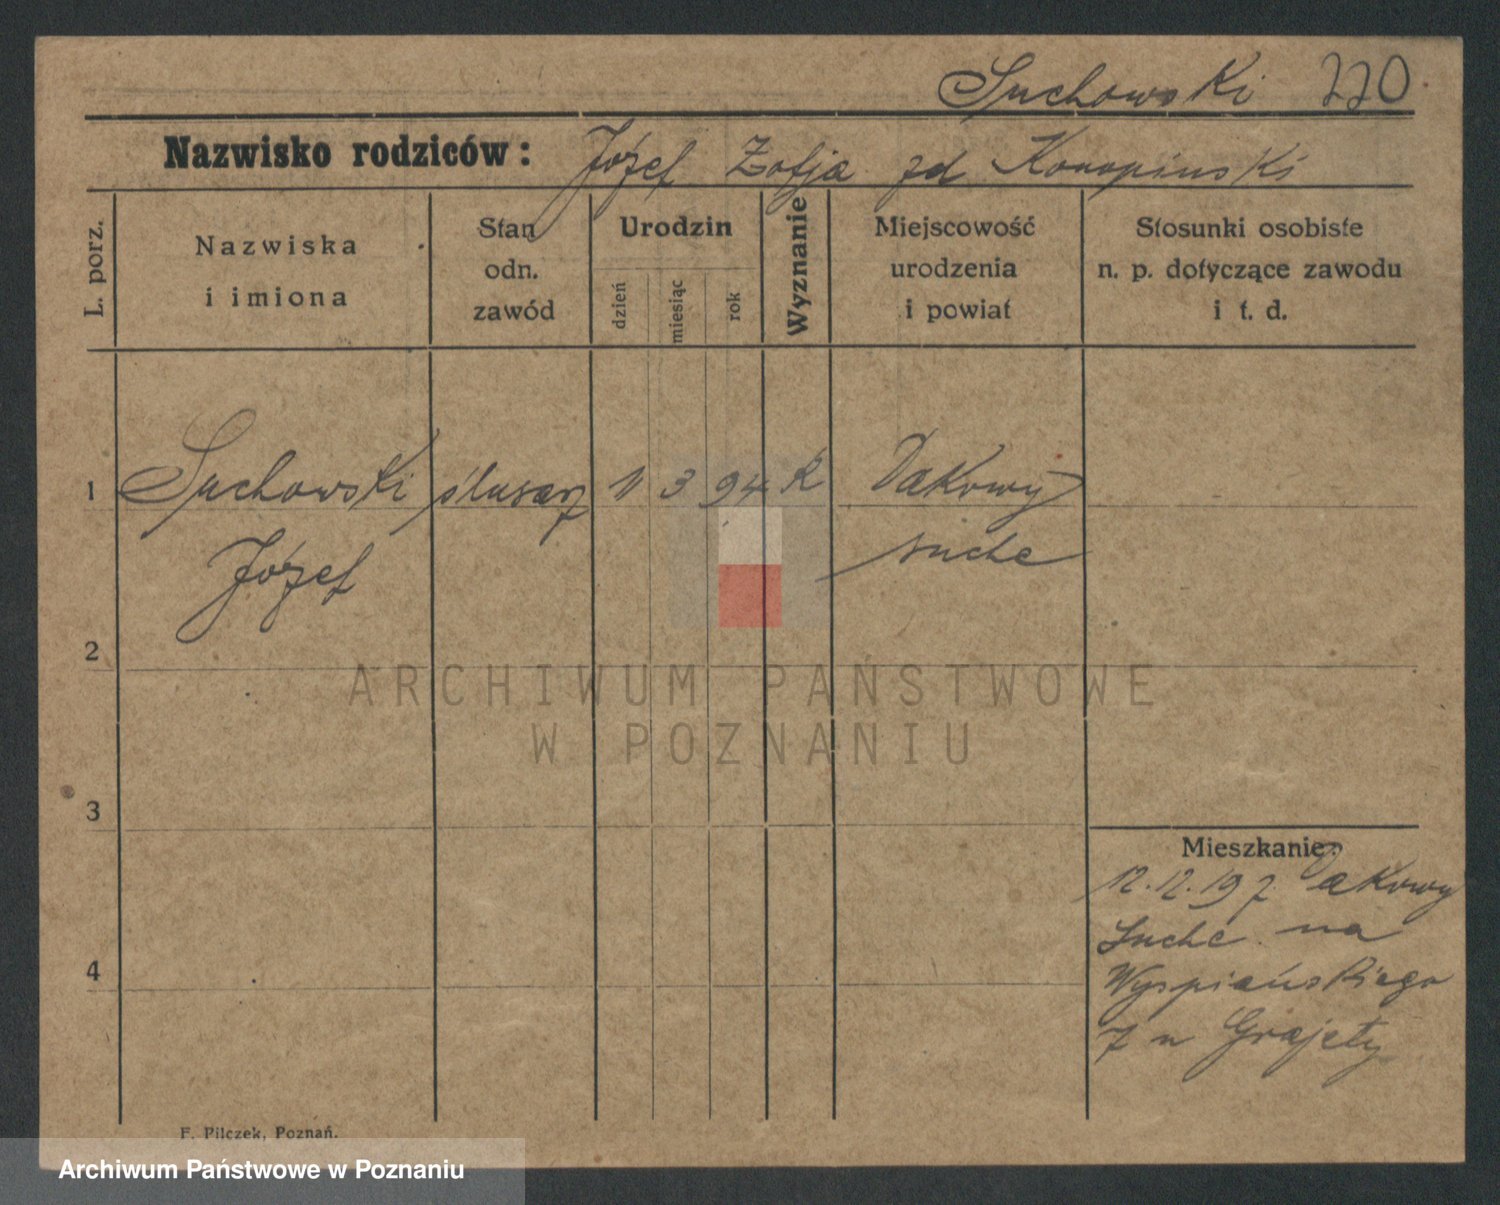 Suchowski 220
Nazwisko rodziców: Józef Zofja zd Konopinski
L. porz.
Nazwiska
i imiona
Stan
odn.
zawód
Urodzin
dzień
miesiąc
rok
Wyznanie
Miejscowość
urodzenia
i powiat
Stosunki osobiste
n. p. dotyczące zawodu
i t. d.
1 Suchowski ślusarz 11 3 94 k Dakowy
Józef suche
2
ARCHIWUM PAŃSTWOWE
W POZNANIU
3
Mieszkanie:
12.12.197 Dakowy
Suche na
4 Wyspiańskiego
7 u Grajety
F. Pilczek, Poznań.
Archiwum Państwowe w Poznaniu